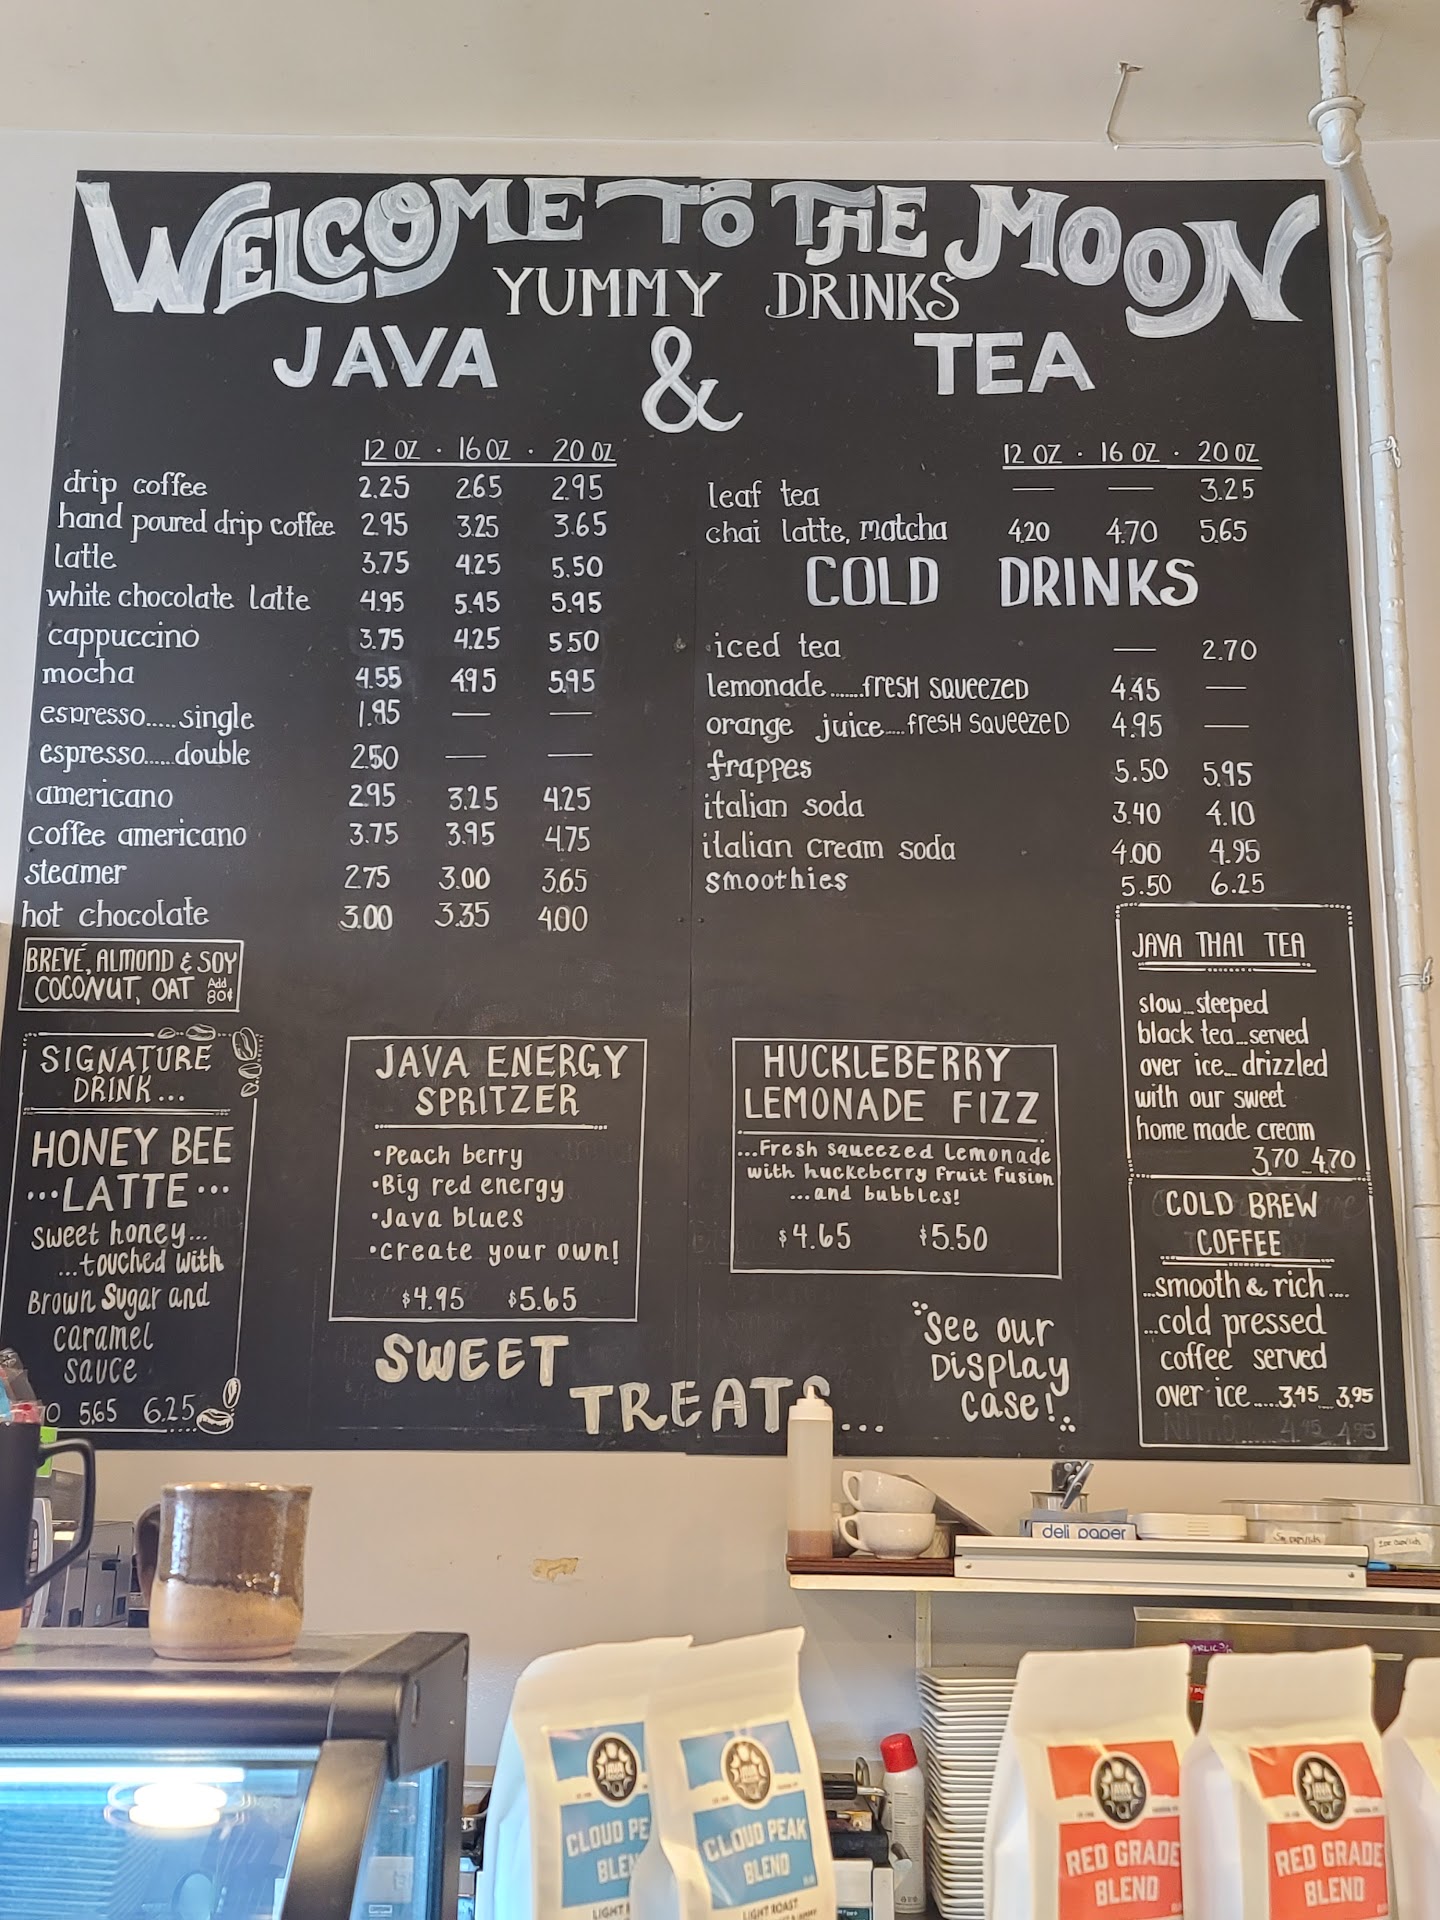 WELCOME TO THE MOON
YUMMY DRINKS
JAVA & TEA
12 OZ · 16 OZ · 20 OZ
drip coffee 2.25 2.65 2.95
hand poured drip coffee 2.95 3.25 3.65
latte 3.75 4.25 5.50
white chocolate latte 4.95 5.45 5.95
cappuccino 3.75 4.25 5.50
mocha 4.55 4.95 5.95
espresso.....single 1.85 — —
espresso.....double 2.50 — —
americano 2.95 3.25 4.25
coffee americano 3.75 3.95 4.75
steamer 2.75 3.00 3.65
hot chocolate 3.00 3.35 4.00
BREVÉ, ALMOND & SOY
COCONUT, OAT Add 80¢
12 OZ · 16 OZ · 20 OZ
leaf tea — — 3.25
chai latte, matcha 4.20 4.70 5.65
COLD DRINKS
iced tea — 2.70
lemonade.......fresh squeezed 4.45 —
orange juice.....fresh squeezed 4.95 —
frappes 5.50 5.95
italian soda 3.40 4.10
italian cream soda 4.00 4.95
smoothies 5.50 6.25
SIGNATURE
DRINK...
HONEY BEE
...LATTE...
sweet honey...
...touched with
Brown Sugar and
caramel
sauce
5.65 6.25
JAVA ENERGY
SPRITZER
•Peach berry
•Big red energy
•Java blues
•Create your own!
$4.95 $5.65
HUCKLEBERRY
LEMONADE FIZZ
...Fresh squeezed Lemonade
with huckeberry Fruit Fusion
...and bubbles!
$4.65 $5.50
JAVA THAI TEA
slow...steeped
black tea...served
over ice...drizzled
with our sweet
home made cream
3.70 4.70
COLD BREW
COFFEE
...smooth & rich....
...cold pressed
coffee served
over ice.....3.45 3.95
NITRO..... 4.45 4.95
SWEET
TREATS...
See our
Display
case!
deli paper
CLOUD PE
BLEN
LIGHT R
CLOUD PEAK
BLEND
LIGHT ROAST
RED GRADE
BLEND
RED GRADE
BLEND